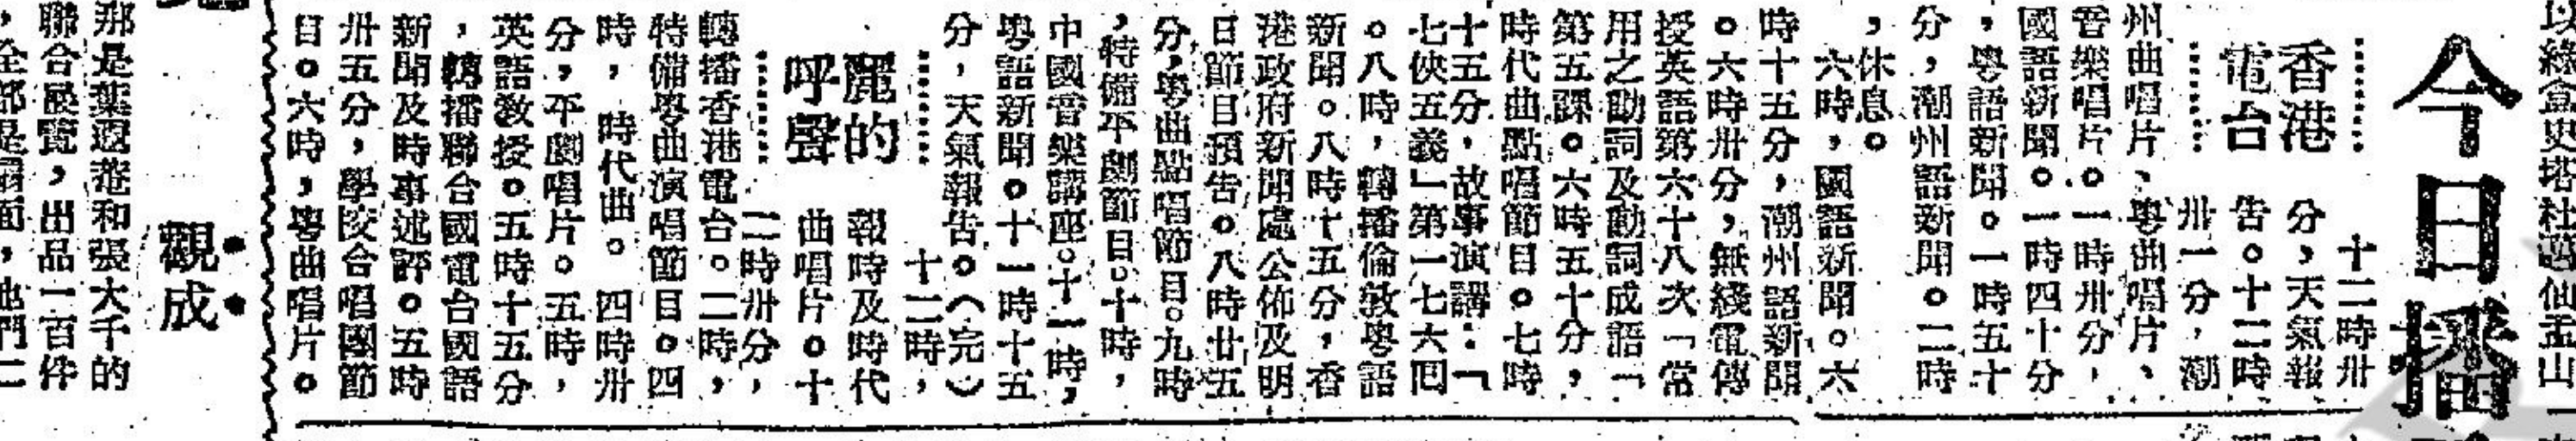 以綠盒史塔杜邊仙孟山
今日播
香港
電台
十二時卅
分，天氣報
告。十二時
卅一分，潮
州曲唱片、粵曲唱片、
音樂唱片。一時卅分，
國語新聞。一時四十分
，粵語新聞。一時五十
分，潮州語新聞。二時
，休息。
六時，國語新聞。六
時十五分，潮州語新聞
。六時卅分，無綫電傳
授英語第六十八次「常
用之助詞及動詞成語「
第五課。六時五十分，
時代曲點唱節目。七時
十五分，故事演講：「
七俠五義」第一七六回
。八時，轉播倫敦粵語
新聞。八時十五分，香
港政府新聞處公佈及明
日節目預告。八時廿五
分，粵曲點唱節目。九時
，特備平劇節目。十時，
中國音樂講座。十一時，
粵語新聞。十一時十五
分，天氣報告。（完）
麗的
呼聲
十二時，
報時及時代
曲唱片。十
二時卅分，
轉播香港電台。二時，
特備粵曲演唱節目。四
時，時代曲。四時卅
分，平劇唱片。五時，
英語教授。五時十五分
，轉播聯合國電台國語
新聞及時事述評。五時
卅五分，學校合唱團節
目。六時，粵曲唱片。
觀成
那是葉遐菴和張大千的
聯合展覽，出品一百件
，全部是扇面，他們二